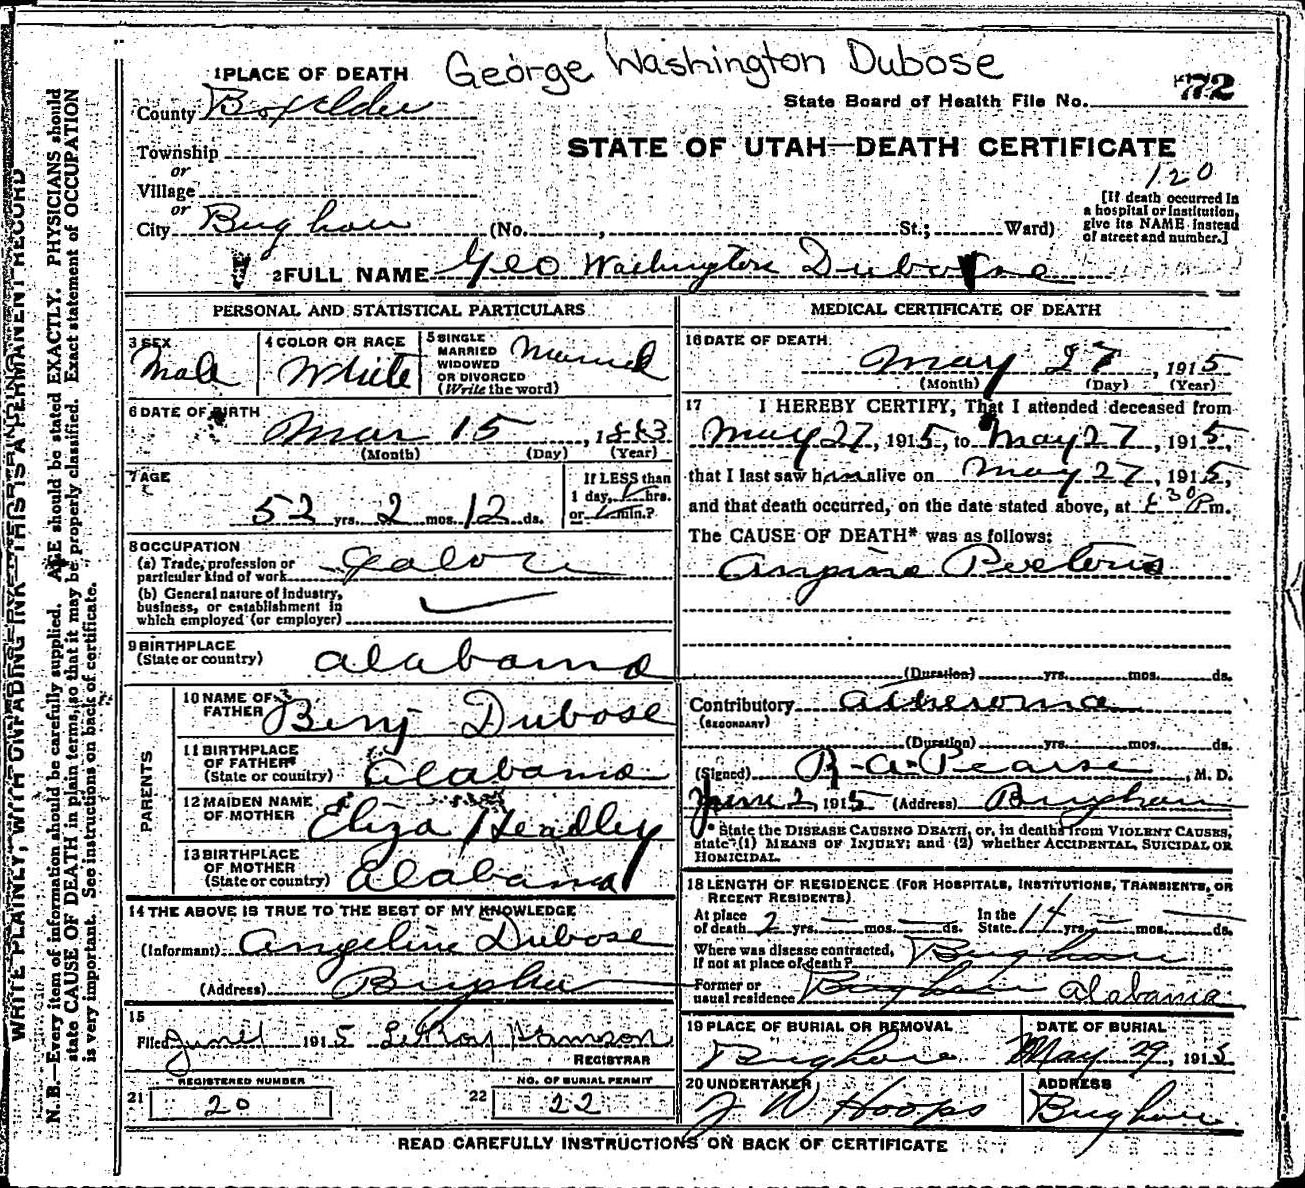 George Washington Dubose
1 PLACE OF DEATH
72
State Board of Health File No.
County Boxelder
STATE OF UTAH—DEATH CERTIFICATE
Township
or
Village
120
[If death occurred in
a hospital or institution,
give its NAME instead
of street and number.]
or
City Brigham (No. , St.; Ward)
2 FULL NAME Geo Washington
PERSONAL AND STATISTICAL PARTICULARS
3 SEX
Male
4 COLOR OR RACE
White
5 SINGLE
MARRIED
WIDOWED
OR DIVORCED
(Write the word)
Married
6 DATE OF BIRTH
Mar 15, 1863
(Month) (Day) (Year)
7 AGE
52 yrs. 2 mos. 12 ds.
If LESS than
1 day, hrs.
or min.?
8 OCCUPATION
(a) Trade, profession or
particular kind of work
(b) General nature of industry,
business, or establishment in
which employed (or employer)
9 BIRTHPLACE
(State or country) Alabama
PARENTS
10 NAME OF
FATHER Benj Dubose
11 BIRTHPLACE
OF FATHER
(State or country) Alabama
12 MAIDEN NAME
OF MOTHER Eliza Headley
13 BIRTHPLACE
OF MOTHER
(State or country) Alabama
14 THE ABOVE IS TRUE TO THE BEST OF MY KNOWLEDGE
(Informant) Angeline Dubose
(Address) Brigham
15
Filed June 1 1915
REGISTRAR
REGISTERED NUMBER
21 20
NO. OF BURIAL PERMIT
22 22
MEDICAL CERTIFICATE OF DEATH
16 DATE OF DEATH
May 27, 1915
(Month) (Day) (Year)
17 I HEREBY CERTIFY, That I attended deceased from
May 27, 1915, to May 27, 1915,
that I last saw him alive on May 27, 1915,
and that death occurred, on the date stated above, at 30 P m.
The CAUSE OF DEATH* was as follows:
Angina Pectoris
(Duration) yrs. mos. ds.
Contributory Atheroma
(SECONDARY)
(Duration) yrs. mos. ds.
(Signed) R-A-Pearse, M. D.
June 2, 1915 (Address) Brigham
* State the DISEASE CAUSING DEATH, or, in deaths from VIOLENT CAUSES,
state (1) MEANS OF INJURY; and (2) whether ACCIDENTAL, SUICIDAL OR
HOMICIDAL.
18 LENGTH OF RESIDENCE (FOR HOSPITALS, INSTITUTIONS, TRANSIENTS, OR
RECENT RESIDENTS).
At place
of death 2 yrs. mos. ds.
In the
State 14 yrs. mos. ds.
Where was disease contracted,
If not at place of death? Brigham
Former or
usual residence Brigham Alabama
19 PLACE OF BURIAL OR REMOVAL
Brigham
DATE OF BURIAL
May 29, 1915
20 UNDERTAKER
J W Hoops
ADDRESS
Brigham
READ CAREFULLY INSTRUCTIONS ON BACK OF CERTIFICATE
WRITE PLAINLY, WITH UNFADING INK—THIS IS A PERMANENT RECORD
N. B.—Every item of information should be carefully supplied. AGE should be stated EXACTLY. PHYSICIANS should
state CAUSE OF DEATH in plain terms, so that it may be properly classified. Exact statement of OCCUPATION
is very important. See instructions on back of certificate.